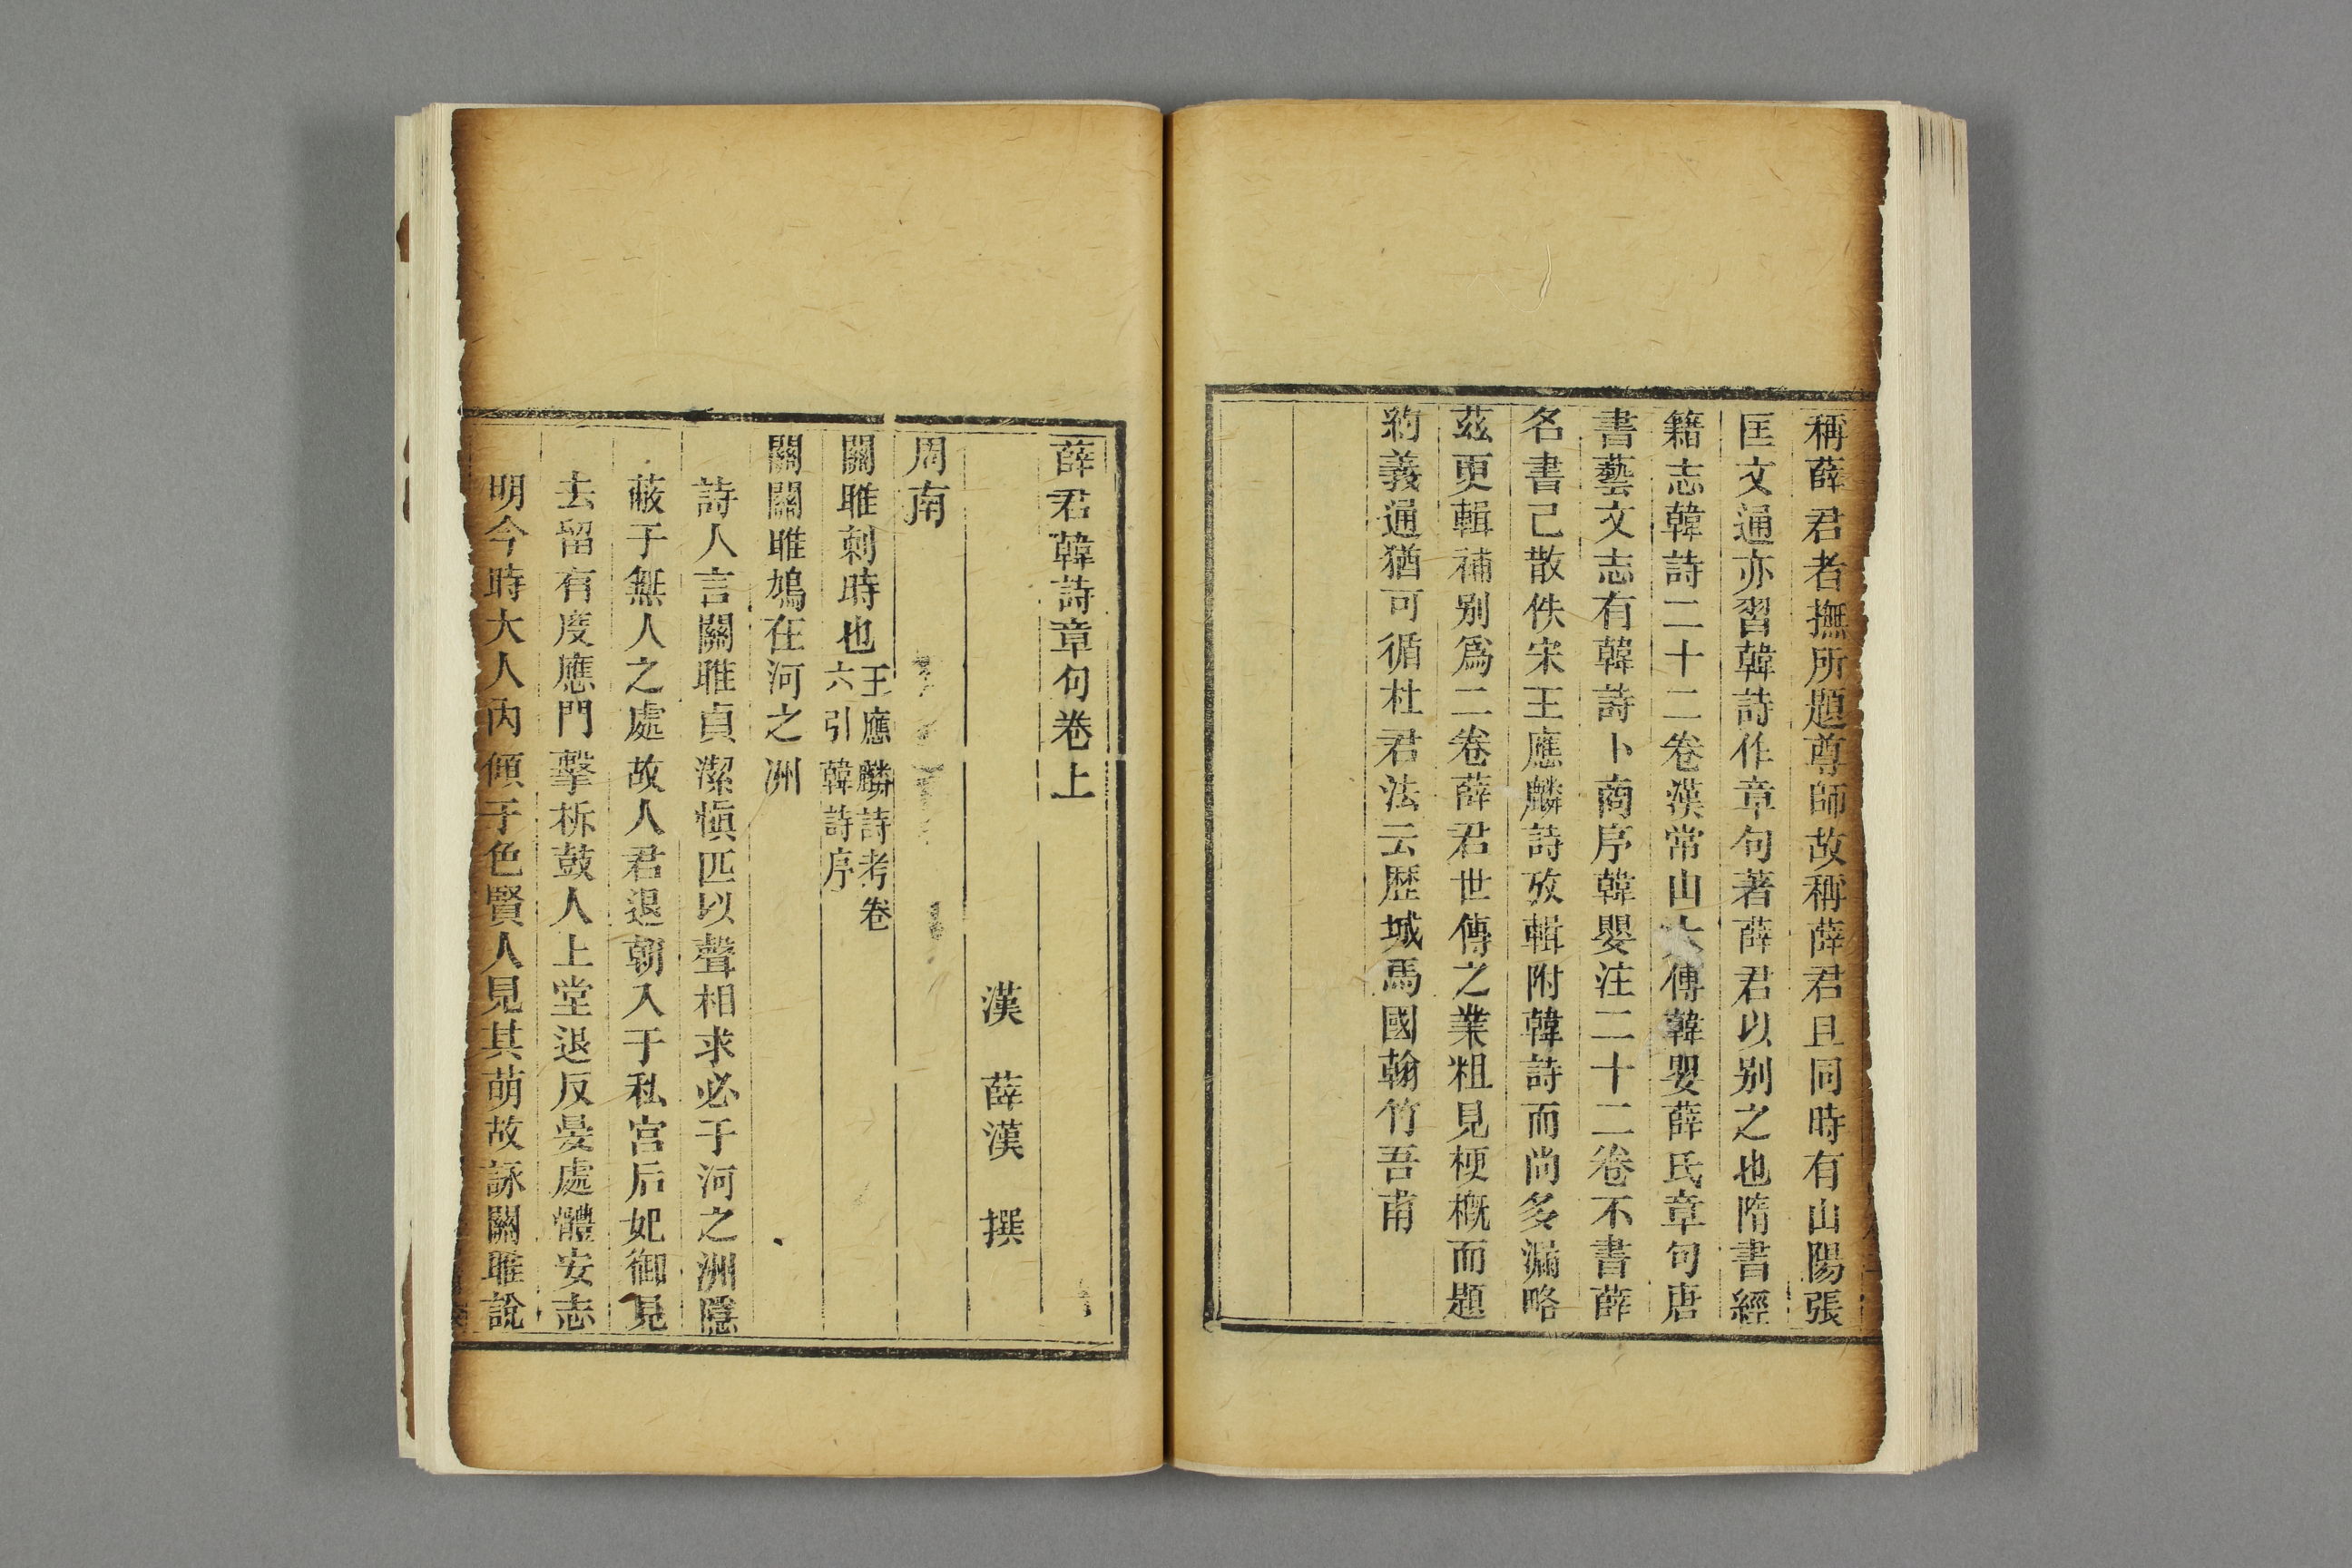 稱薛君者撫所題尊師故稱薛君且同時有山陽張
匡文通亦習韓詩作章句著薛君以别之也隋書經
籍志韓詩二十二卷漢常山太傅韓嬰薛氏章句唐
書藝文志有韓詩卜商序韓嬰注二十二卷不書薛
名書已散佚宋王應麟詩攷輯附韓詩而尚多漏略
茲更輯補别爲二卷薛君世傳之業粗見梗概而題
約義通猶可循杜君法云歷城馬國翰竹吾甫
薛君韓詩章句卷上
漢 薛漢 撰
周南
關雎刺時也王應麟詩考卷
六引韓詩序
關關雎鳩在河之洲
詩人言關雎貞潔愼匹以聲相求必于河之洲隱
蔽于無人之處故人君退朝入于私宫后妃御見
去留有度應門擊柝鼓人上堂退反晏處體安志
明今時大人內傾于色賢人見其萌故詠關雎說